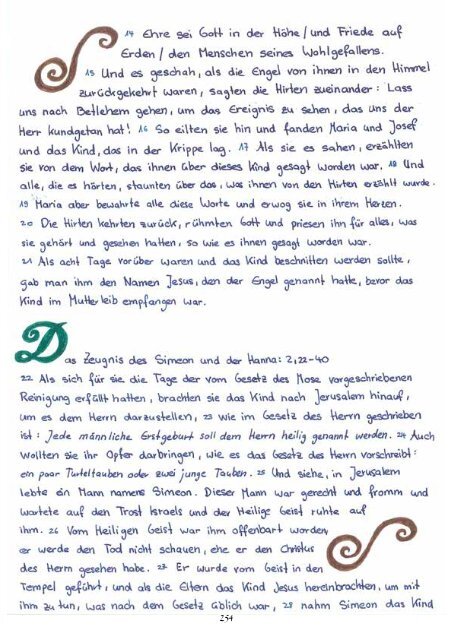 14 Ehre sei Gott in der Höhe / und Friede auf
Erden / den Menschen seines Wohlgefallens.
15 Und es geschah, als die Engel von ihnen in den Himmel
zurückgekehrt waren, sagten die Hirten zueinander: Lass
uns nach Betlehem gehen, um das Ereignis zu sehen, das uns der
Herr kundgetan hat! 16 So eilten sie hin und fanden Maria und Josef
und das Kind, das in der Krippe lag. 17 Als sie es sahen, erzählten
sie von dem Wort, das ihnen über dieses Kind gesagt worden war. 18 Und
alle, die es hörten, staunten über das, was ihnen von den Hirten erzählt wurde.
19 Maria aber bewahrte alle diese Worte und erwog sie in ihrem Herzen.
20 Die Hirten kehrten zurück, rühmten Gott und priesen ihn für alles, was
sie gehört und gesehen hatten, so wie es ihnen gesagt worden war.
21 Als acht Tage vorüber waren und das Kind beschnitten werden sollte,
gab man ihm den Namen Jesus, den der Engel genannt hatte, bevor das
Kind im Mutterleib empfangen war.
Das Zeugnis des Simeon und der Hanna: 2,22-40
22 Als sich für sie die Tage der vom Gesetz des Mose vorgeschriebenen
Reinigung erfüllt hatten, brachten sie das Kind nach Jerusalem hinauf,
um es dem Herrn darzustellen, 23 wie im Gesetz des Herrn geschrieben
ist: Jede männliche Erstgeburt soll dem Herrn heilig genannt werden. 24 Auch
wollten sie ihr Opfer darbringen, wie es das Gesetz des Herrn vorschreibt:
ein paar Turteltauben oder zwei junge Tauben. 25 Und siehe, in Jerusalem
lebte ein Mann namens Simeon. Dieser Mann war gerecht und fromm und
wartete auf den Trost Israels und der Heilige Geist ruhte auf
ihm. 26 Vom Heiligen Geist war ihm offenbart worden,
er werde den Tod nicht schauen, ehe er den Christus
des Herrn gesehen habe. 27 Er wurde vom Geist in den
Tempel geführt, und als die Eltern das Kind Jesus hereinbrachten, um mit
ihm zu tun, was nach dem Gesetz üblich war, 28 nahm Simeon das Kind
254